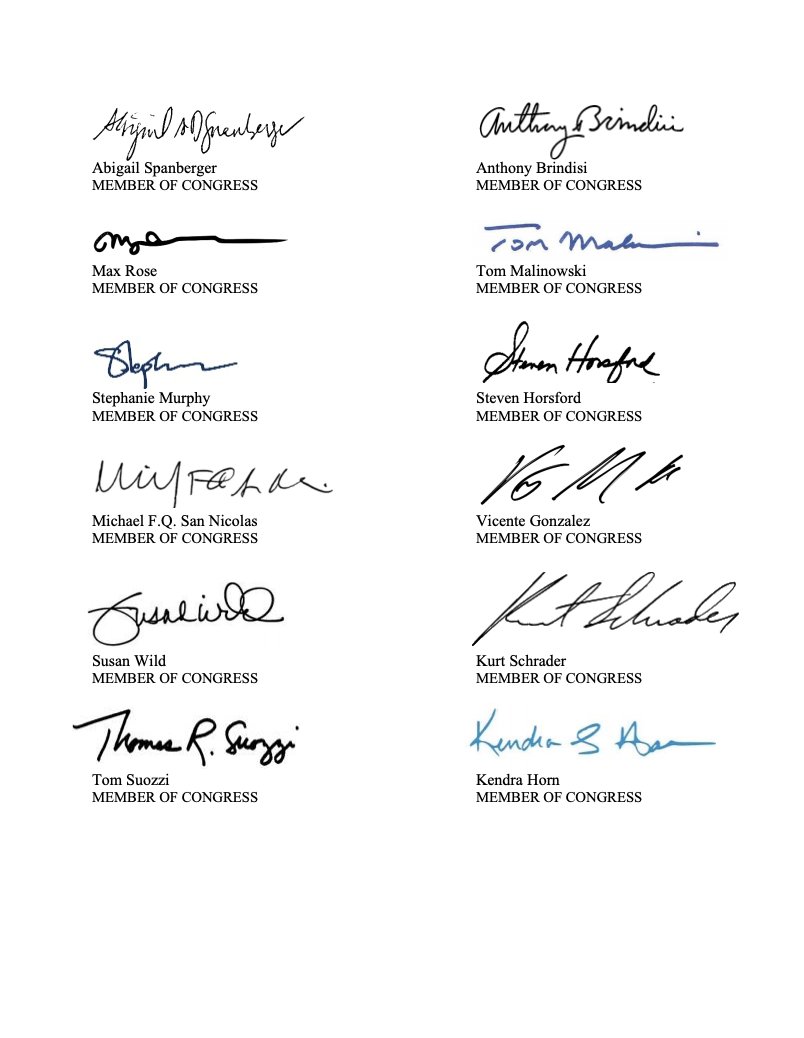 Abigail D Spanberger
Anthony Brindisi
Abigail Spanberger
Anthony Brindisi
MEMBER OF CONGRESS
MEMBER OF CONGRESS
Tom
Max Rose
Tom Malinowski
MEMBER OF CONGRESS
MEMBER OF CONGRESS
Steven Horsford
Stephanie Murphy
Steven Horsford
MEMBER OF CONGRESS
MEMBER OF CONGRESS
Michael F.Q. San Nicolas
Vicente Gonzalez
MEMBER OF CONGRESS
MEMBER OF CONGRESS
Susan Wild
Kurt Schrader
Susan Wild
Kurt Schrader
MEMBER OF CONGRESS
MEMBER OF CONGRESS
Thomas R. Suozzi
Kendra S Horn
Tom Suozzi
Kendra Horn
MEMBER OF CONGRESS
MEMBER OF CONGRESS